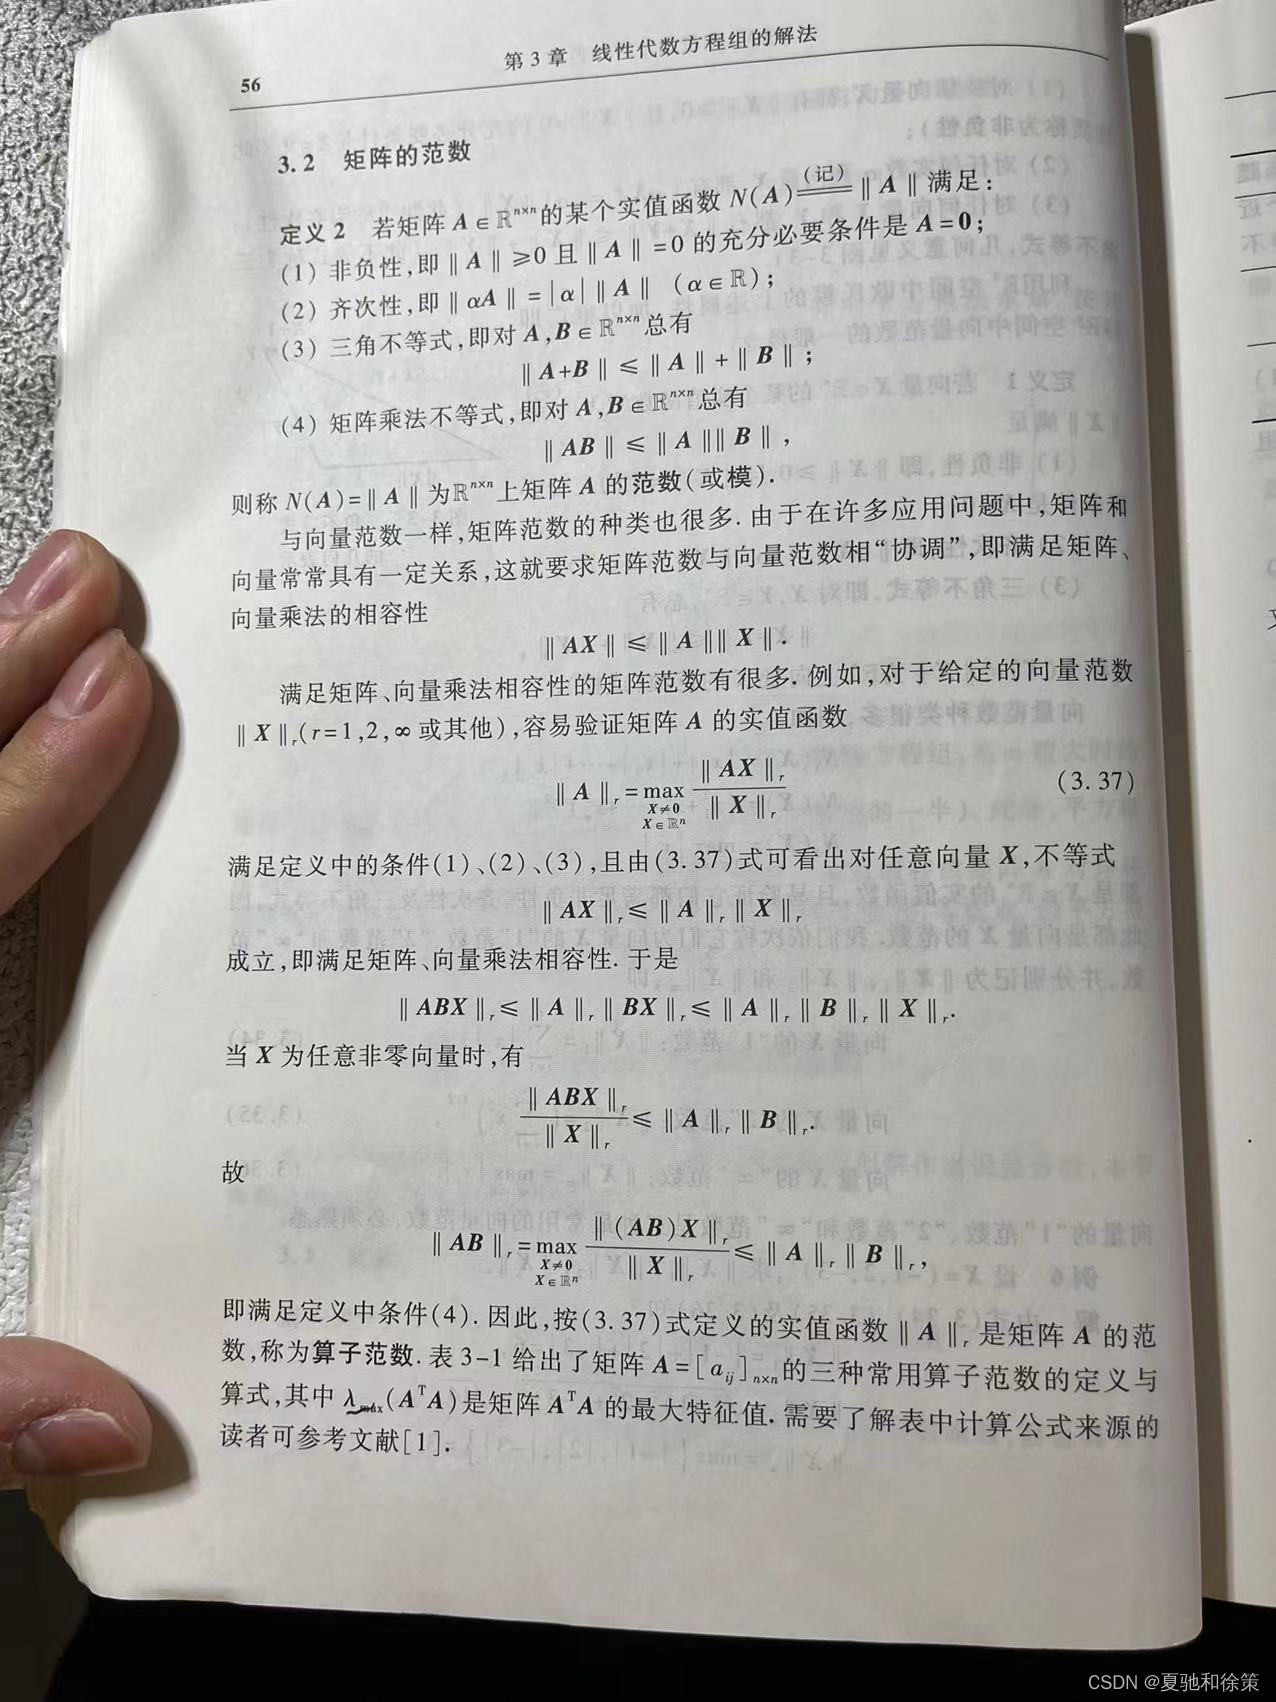 56
第3章 线性代数方程组的解法
3.2 矩阵的范数
定义2 若矩阵 A∈ℝⁿˣⁿ的某个实值函数 N(A)══(记)‖A‖满足:
(1) 非负性,即‖A‖≥0且‖A‖=0的充分必要条件是A=0;
(2) 齐次性,即‖αA‖=|α|‖A‖ (α∈ℝ);
(3) 三角不等式,即对A,B∈ℝⁿˣⁿ总有
‖A+B‖≤‖A‖+‖B‖;
(4) 矩阵乘法不等式,即对A,B∈ℝⁿˣⁿ总有
‖AB‖≤‖A‖‖B‖,
则称N(A)=‖A‖为ℝⁿˣⁿ上矩阵A的范数(或模).
与向量范数一样,矩阵范数的种类也很多.由于在许多应用问题中,矩阵和
向量常常具有一定关系,这就要求矩阵范数与向量范数相“协调”,即满足矩阵、
向量乘法的相容性
‖AX‖≤‖A‖‖X‖.
满足矩阵、向量乘法相容性的矩阵范数有很多.例如,对于给定的向量范数
‖X‖ᵣ(r=1,2,∞或其他),容易验证矩阵A的实值函数
‖A‖ᵣ=max_{X≠0, X∈ℝⁿ} ‖AX‖ᵣ/‖X‖ᵣ (3.37)
满足定义中的条件(1)、(2)、(3),且由(3.37)式可看出对任意向量X,不等式
‖AX‖ᵣ≤‖A‖ᵣ‖X‖ᵣ
成立,即满足矩阵、向量乘法相容性.于是
‖ABX‖ᵣ≤‖A‖ᵣ‖BX‖ᵣ≤‖A‖ᵣ‖B‖ᵣ‖X‖ᵣ.
当X为任意非零向量时,有
‖ABX‖ᵣ/‖X‖ᵣ≤‖A‖ᵣ‖B‖ᵣ.
故
‖AB‖ᵣ=max_{X≠0, X∈ℝⁿ} ‖(AB)X‖ᵣ/‖X‖ᵣ≤‖A‖ᵣ‖B‖ᵣ,
即满足定义中条件(4).因此,按(3.37)式定义的实值函数‖A‖ᵣ是矩阵A的范
数,称为算子范数.表3-1给出了矩阵A=[aᵢⱼ]ₙₓₙ的三种常用算子范数的定义与
算式,其中λmax(AᵀA)是矩阵AᵀA的最大特征值.需要了解表中计算公式来源的
读者可参考文献[1].
CSDN @夏驰和徐策